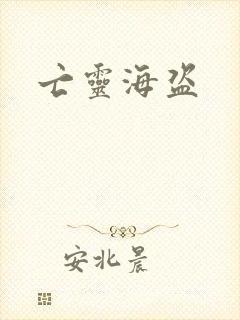 亡靈海盗
安北晨